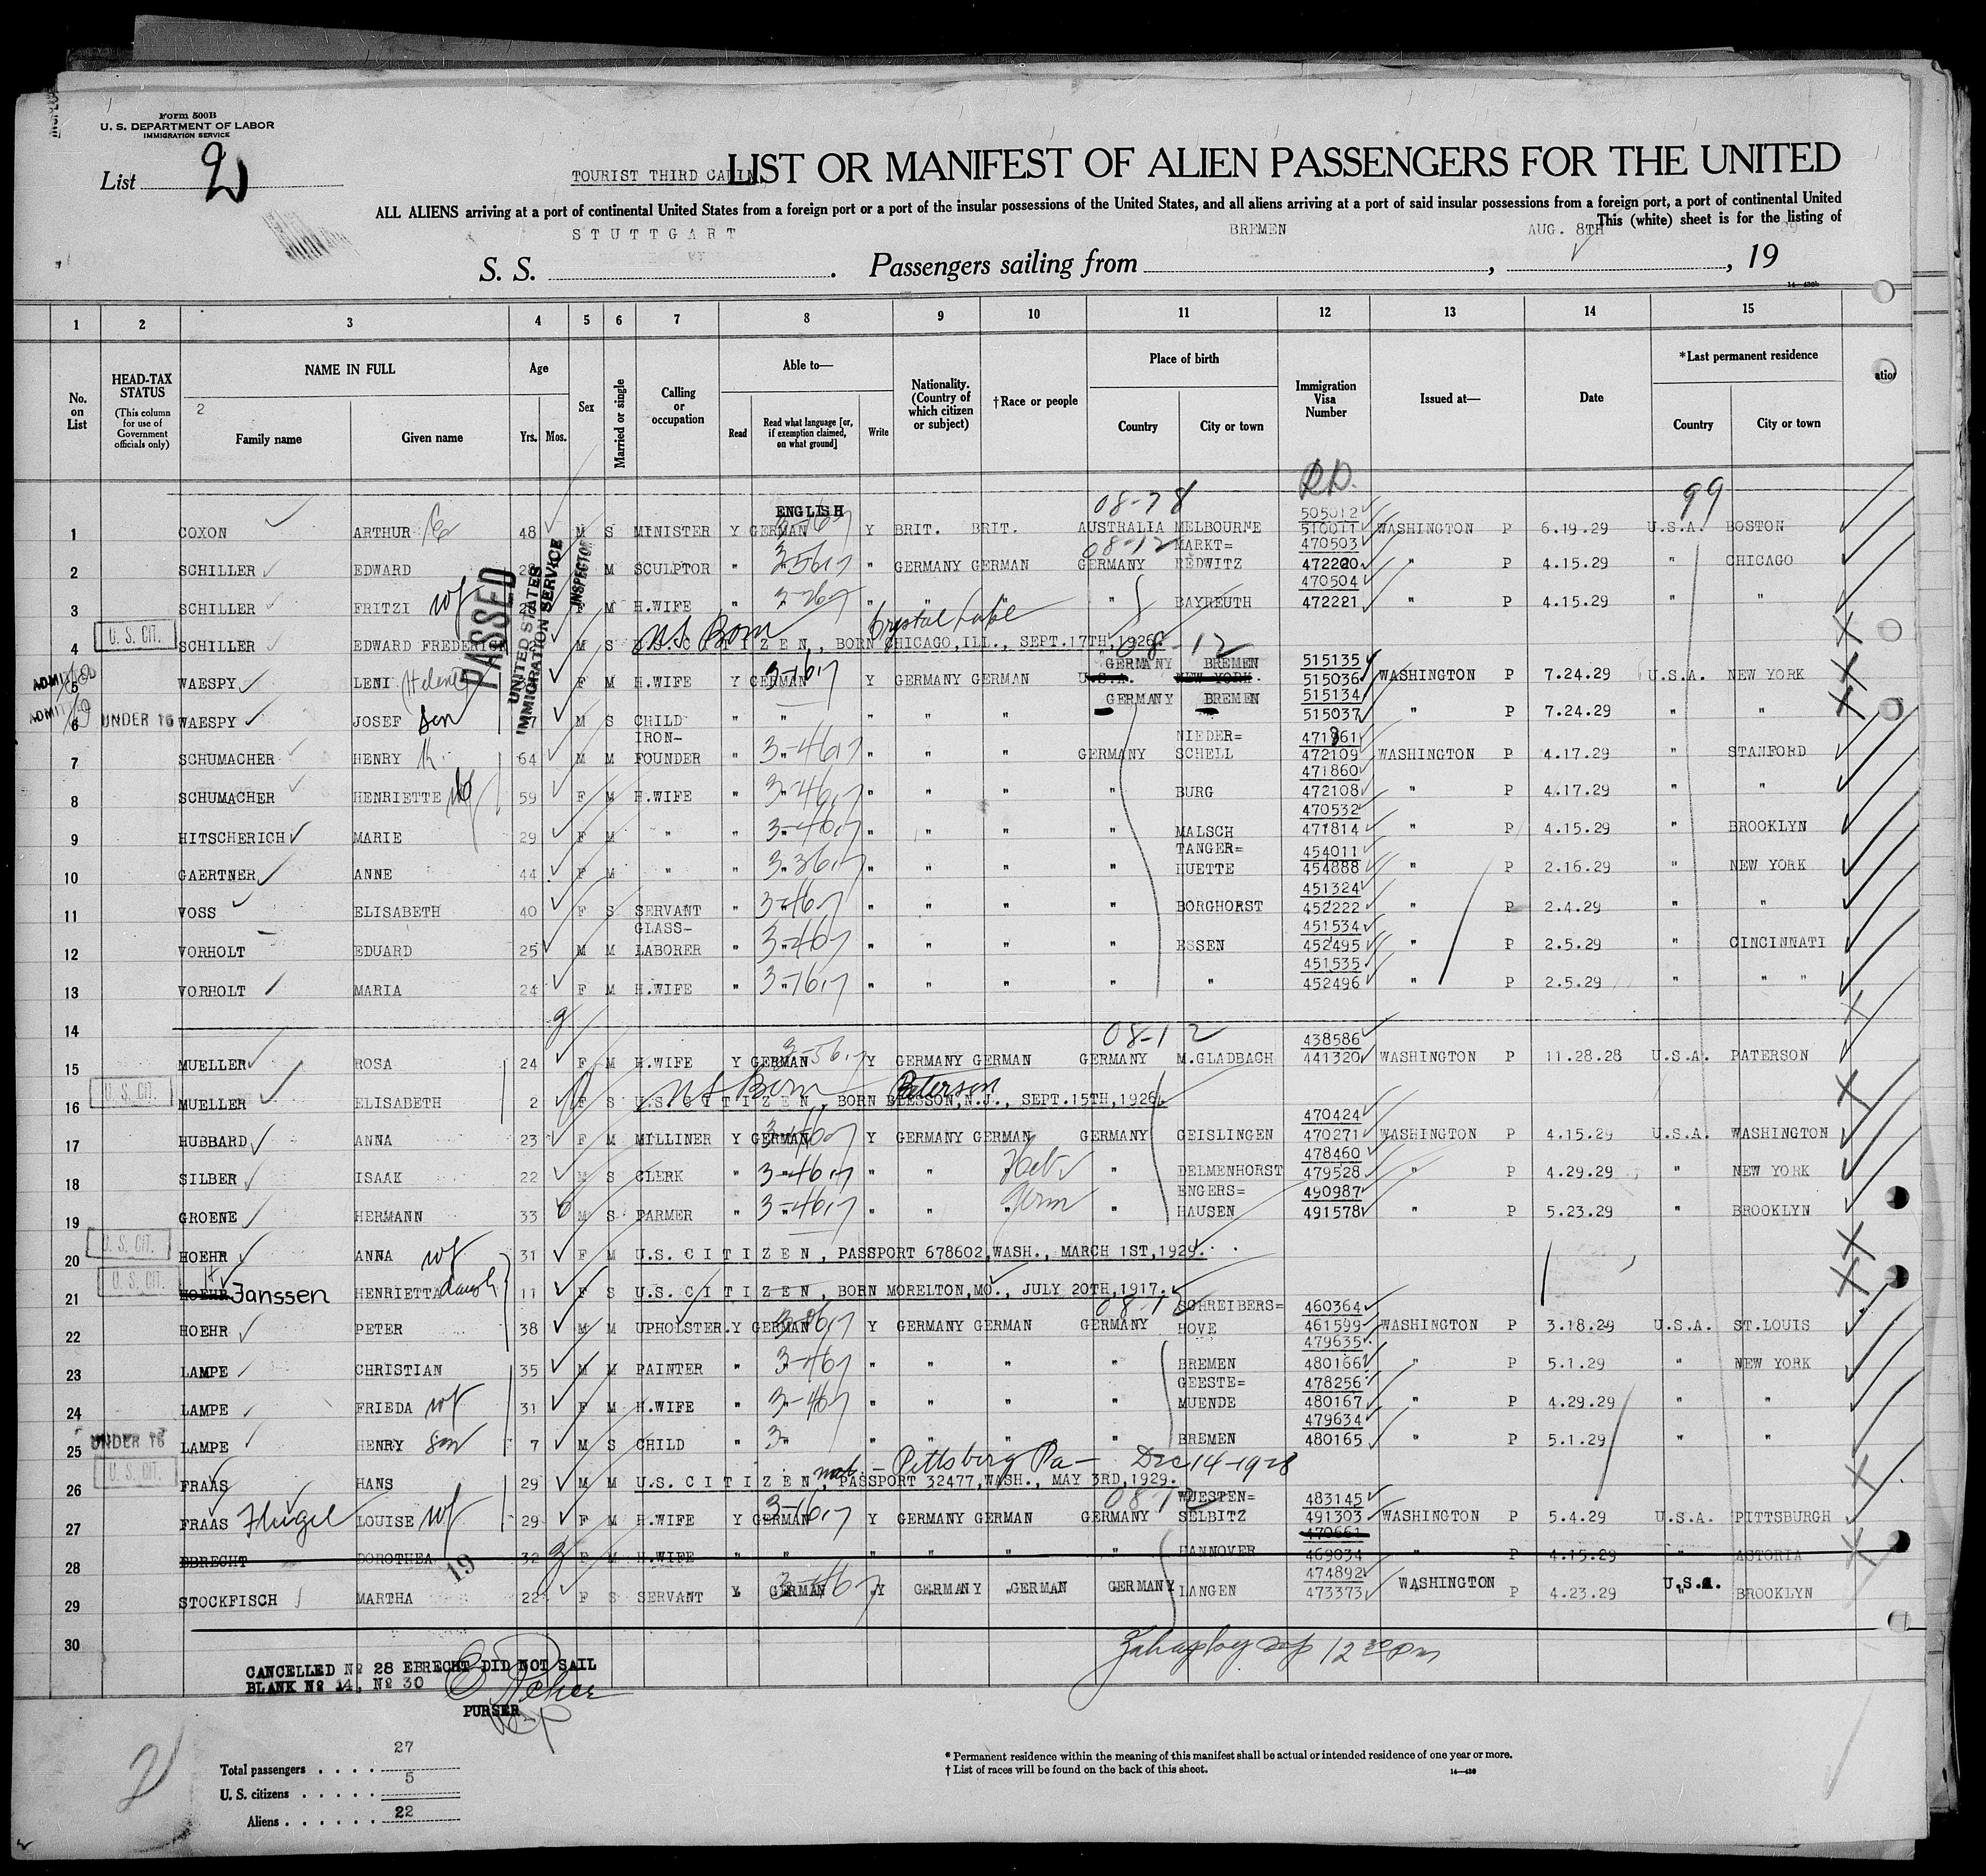 Form 500B
U. S. DEPARTMENT OF LABOR
IMMIGRATION SERVICE
List 2
TOURIST THIRD CABIN
LIST OR MANIFEST OF ALIEN PASSENGERS FOR THE UNITED
ALL ALIENS arriving at a port of continental United States from a foreign port or a port of the insular possessions of the United States, and all aliens arriving at a port of said insular possessions from a foreign port, a port of continental United
This (white) sheet is for the listing of
S. S. STUTTGART. Passengers sailing from BREMEN, AUG. 8TH, 19
1 2 3 4 5 6 7 8 9 10 11 12 13 14 15
No. on List
HEAD-TAX STATUS (This column for use of Government officials only)
NAME IN FULL
2
Family name
Given name
Age
Yrs.
Mos.
Sex
Married or single
Calling or occupation
Able to—
Read
Read what language [or, if exemption claimed, on what ground]
Write
Nationality. (Country of which citizen or subject)
†Race or people
Place of birth
Country
City or town
Immigration Visa Number
Issued at—
Date
*Last permanent residence
Country
City or town
08-78 99
ENGLISH 505012
1 COXON ARTHUR 48 M S MINISTER Y GERMAN Y BRIT. BRIT. AUSTRALIA MELBOURNE 510011 WASHINGTON P 6.19.29 U.S.A. BOSTON
08-12 MARKT= 470503
2 SCHILLER EDWARD 28 M M SCULPTOR " " GERMANY GERMAN GERMANY REDWITZ 472220 " P 4.15.29 " CHICAGO
470504
3 SCHILLER FRITZI wf F M H.WIFE " " " " " " BAYREUTH 472221 " P 4.15.29 " "
US Born Crystal Lake
U. S. CIT.
4 SCHILLER EDWARD FREDERICK 2 M S U.S. CITIZEN, BORN CHICAGO,ILL., SEPT.17TH,1926.
08-12
GERMANY BREMEN 515135
ADMITTED
5 WAESPY LENI (Helene) F M H.WIFE Y GERMAN Y GERMANY GERMAN U.S.A. NEW YORK. 515036 WASHINGTON P 7.24.29 U.S.A. NEW YORK
GERMANY BREMEN 515134
ADMITTED
6 UNDER 16 WAESPY JOSEF Son 7 M S CHILD " " " " " 515037 " P 7.24.29 " "
IRON- NIEDER= 471861
7 SCHUMACHER HENRY 64 M M FOUNDER " 3-4617 " " " GERMANY SCHELL 472109 WASHINGTON P 4.17.29 " STANFORD
471860
8 SCHUMACHER HENRIETTE wf 59 F M H.WIFE " " " " " " BURG 472108 " P 4.17.29 " "
470532
9 HITSCHERICH MARIE 29 F M " " " " " " " MALSCH 471814 " P 4.15.29 " BROOKLYN
TANGER= 454011
10 GAERTNER ANNE 44 F M " " " " " " " HUETTE 454888 " P 2.16.29 " NEW YORK
451324
11 VOSS ELISABETH 40 F S SERVANT " " " " " " BORGHORST 452222 " P 2.4.29 " "
GLASS- 451534
12 VORHOLT EDUARD 25 M M LABORER " " " " " " ESSEN 452495 " P 2.5.29 " CINCINNATI
451535
13 VORHOLT MARIA 24 F M H.WIFE " " " " " " " 452496 " P 2.5.29 " " "
14
08-12 438586
15 MUELLER ROSA 24 F M H.WIFE Y GERMAN Y GERMANY GERMAN GERMANY M.GLADBACH 441320 WASHINGTON P 11.28.28 U.S.A. PATERSON
US Born Paterson
U. S. CIT.
16 MUELLER ELISABETH 2 F S U.S. CITIZEN, BORN BLESSON,N.J., SEPT.15TH,1926.
470424
17 HUBBARD ANNA 23 F M MILLINER Y GERMAN Y GERMANY GERMAN GERMANY GEISLINGEN 470271 WASHINGTON P 4.15.29 U.S.A. WASHINGTON
478460
18 SILBER ISAAK 22 M S CLERK " 3-4617 " " Heb " DELMENHORST 479528 " P 4.29.29 " NEW YORK
ENGERS= 490987
19 GROENE HERMANN 33 M S FARMER " 3-4617 " " Germ " HAUSEN 491578 " P 5.23.29 " BROOKLYN
U. S. CIT.
20 HOEHR ANNA wf 31 F M U.S. CITIZEN, PASSPORT 678602,WASH., MARCH 1ST,1929.
U. S. CIT.
21 HOEHR Janssen HENRIETTA daugh 11 F S U.S. CITIZEN, BORN MORELTON,MO., JULY 20TH,1917.
08-12 SCHREIBERS= 460364
22 HOEHR PETER 38 M M UPHOLSTER. Y GERMAN Y GERMANY GERMAN GERMANY HOVE 461599 WASHINGTON P 3.18.29 U.S.A. ST.LOUIS
479635
23 LAMPE CHRISTIAN 35 M M PAINTER " " " " " " BREMEN 480166 " P 5.1.29 " NEW YORK
GEESTE= 478256
24 LAMPE FRIEDA wf 31 F M H.WIFE " " " " " " MUENDE 480167 " P 4.29.29 " "
479634
25 UNDER 16 LAMPE HENRY son 7 M S CHILD " " " " " " BREMEN 480165 " P 5.1.29 " "
nat. - Pittsberg Pa - Dec 14-1928
U. S. CIT.
26 FRAAS HANS 29 M M U.S. CITIZEN, PASSPORT 32477,WASH., MAY 3RD,1929.
08-12 WUESTEN= 483145
27 FRAAS Flügel LOUISE wf 29 F M H.WIFE Y GERMAN Y GERMANY GERMAN GERMANY SELBITZ 491303 WASHINGTON P 5.4.29 U.S.A. PITTSBURGH
470661
28 EBRECHT DOROTHEA 32 F M H.WIFE " " " " " " HANNOVER 469834 " P 4.15.29 " ASTORIA
19 474892
29 STOCKFISCH MARTHA 22 F S SERVANT Y GERMAN Y GERMANY GERMAN GERMANY LANGEN 473373 WASHINGTON P 4.23.29 U.S.A. BROOKLYN
30
PASSED
UNITED STATES
IMMIGRATION SERVICE
INSPECTOR
12 30 pm
CANCELLED No 28 EBRECHT DID NOT SAIL
BLANK No 14, No 30
PURSER
2
Total passengers . . . . 27
U. S. citizens . . . . . 5
Aliens . . . . . . 22
* Permanent residence within the meaning of this manifest shall be actual or intended residence of one year or more.
† List of races will be found on the back of this sheet.
14—430